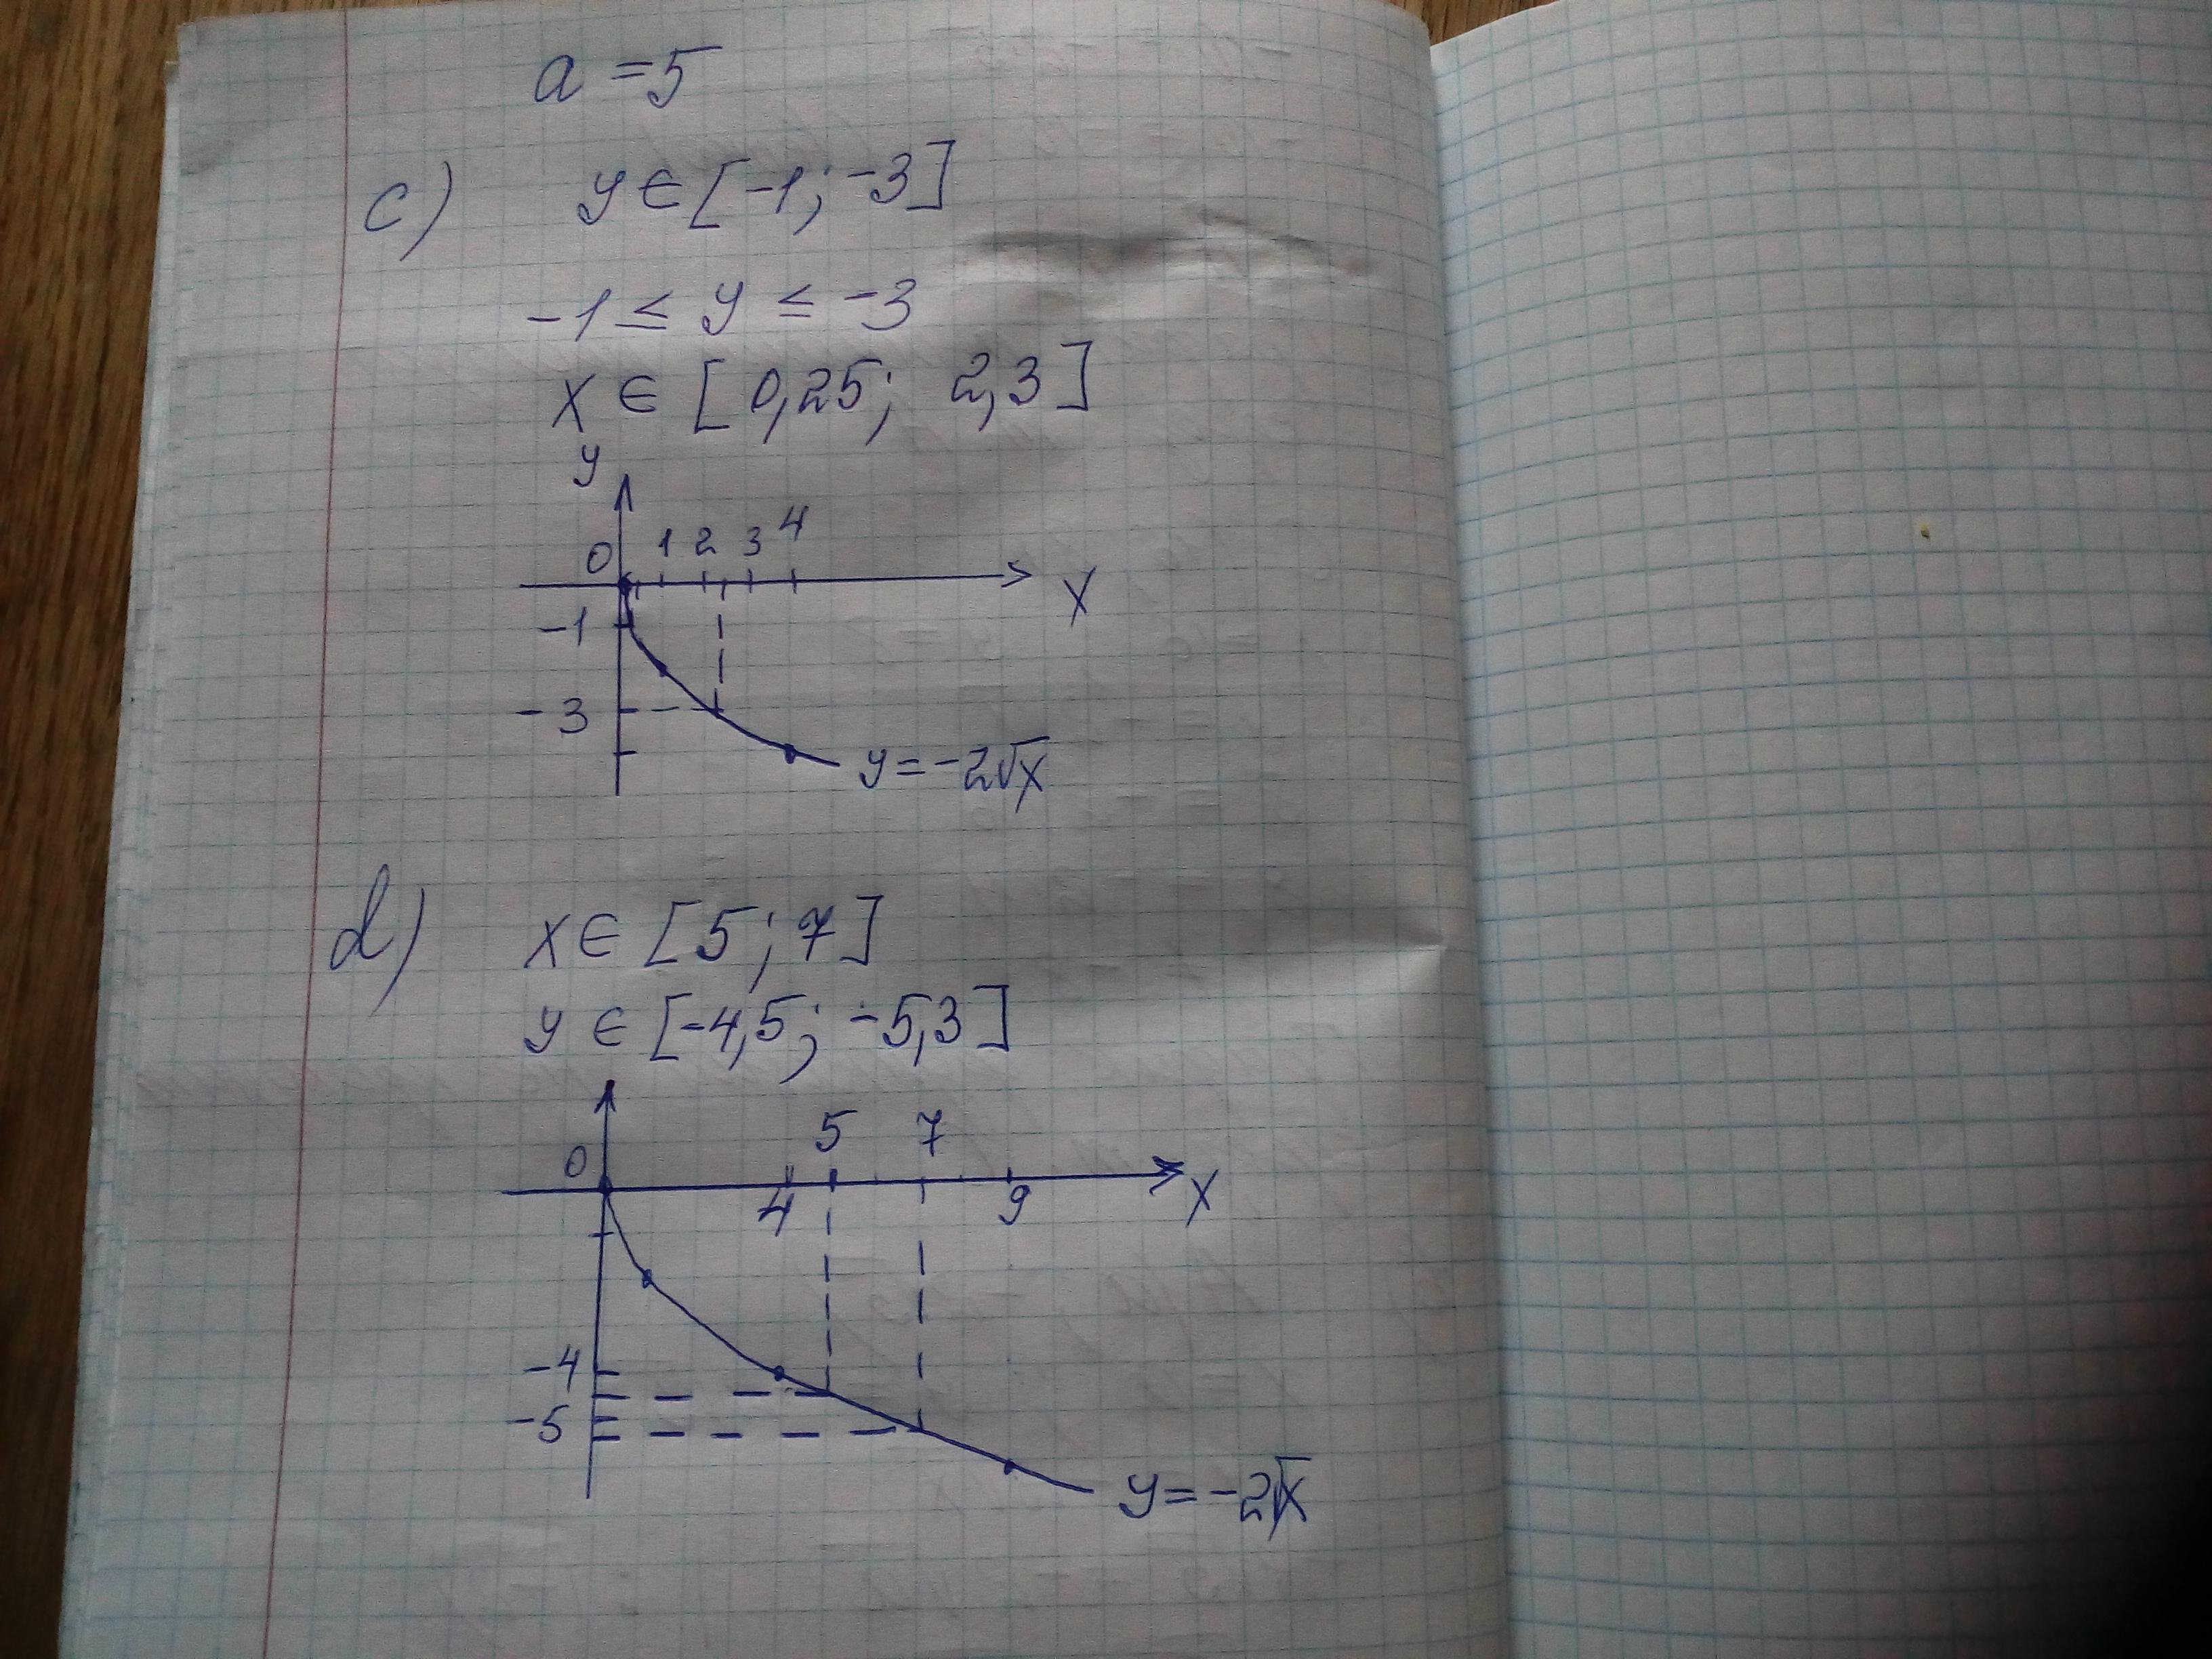 a = 5
c) y ∈ [-1; -3]
-1 ≤ y ≤ -3
x ∈ [0,25; 2,3]
y
0 1 2 3 4
x
-1
-3
y = -2√x
d) x ∈ [5; 7]
y ∈ [-4,5; -5,3]
5 7
0
4 9 x
-4
-5
y = -2√x